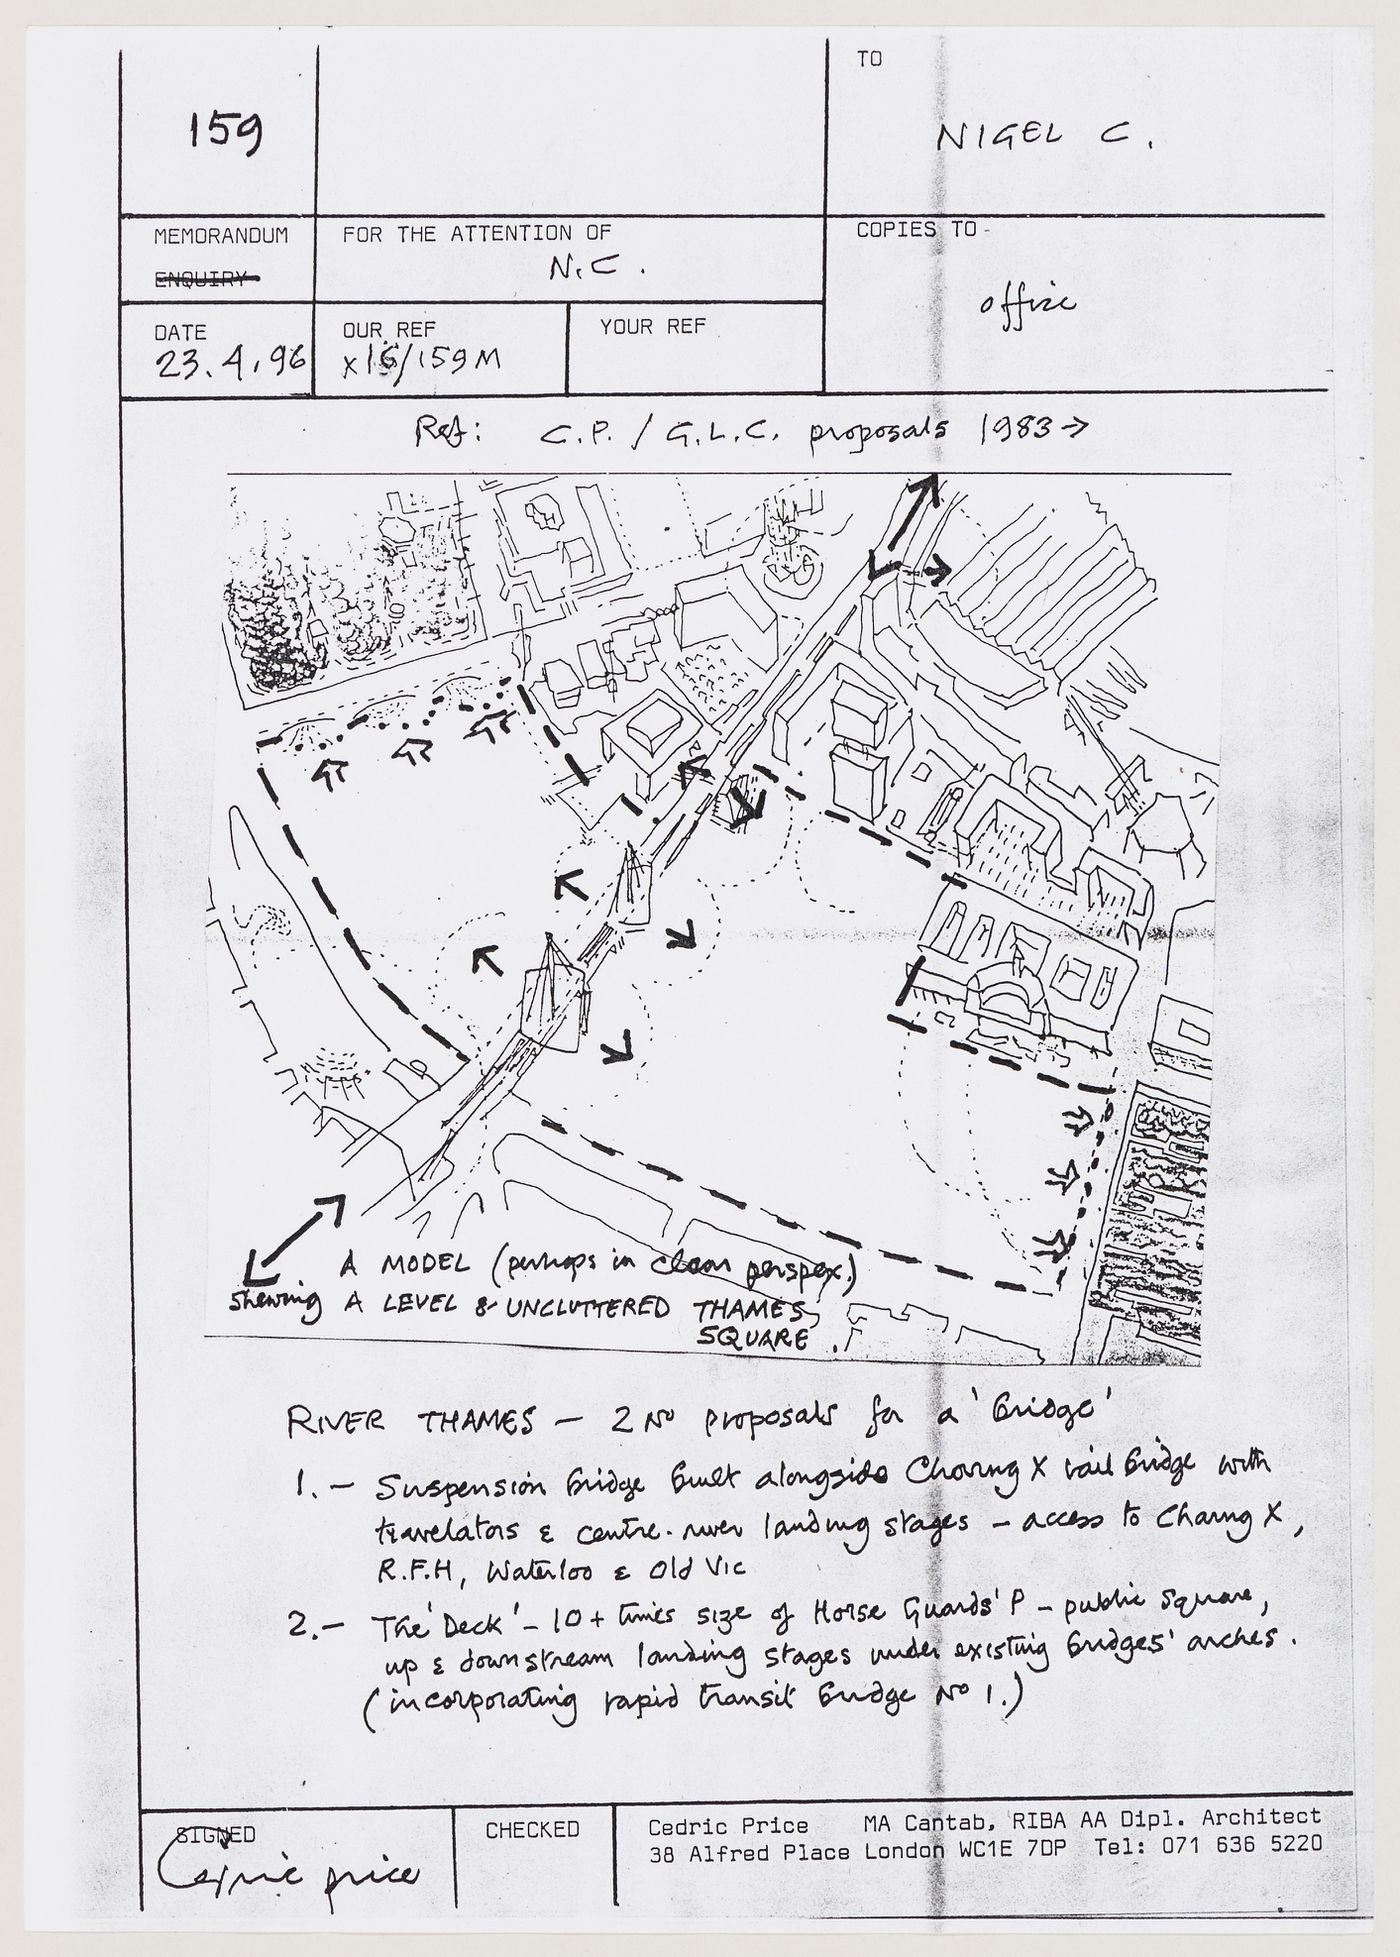 159
TO
NIGEL C.
MEMORANDUM
ENQUIRY
FOR THE ATTENTION OF
N.C.
COPIES TO
office
DATE
23.4.96
OUR REF
X16/159M
YOUR REF
Ref: C.P. / G.L.C. proposals 1983→
A MODEL (perhaps in clear perspex)
shewing A LEVEL & UNCLUTTERED THAMES
SQUARE.
RIVER THAMES — 2 No proposals for a 'bridge'
1. – Suspension bridge built alongside Charing X rail bridge with
travelators & centre-river landing stages – access to Charing X,
R.F.H, Waterloo & Old Vic
2. – The 'Deck' – 10+ times size of Horse Guards' P – public square,
up & downstream landing stages under existing bridges' arches.
(incorporating rapid transit bridge No 1.)
SIGNED
Cedric Price
CHECKED
Cedric Price MA Cantab, RIBA AA Dipl. Architect
38 Alfred Place London WC1E 7DP Tel: 071 636 5220